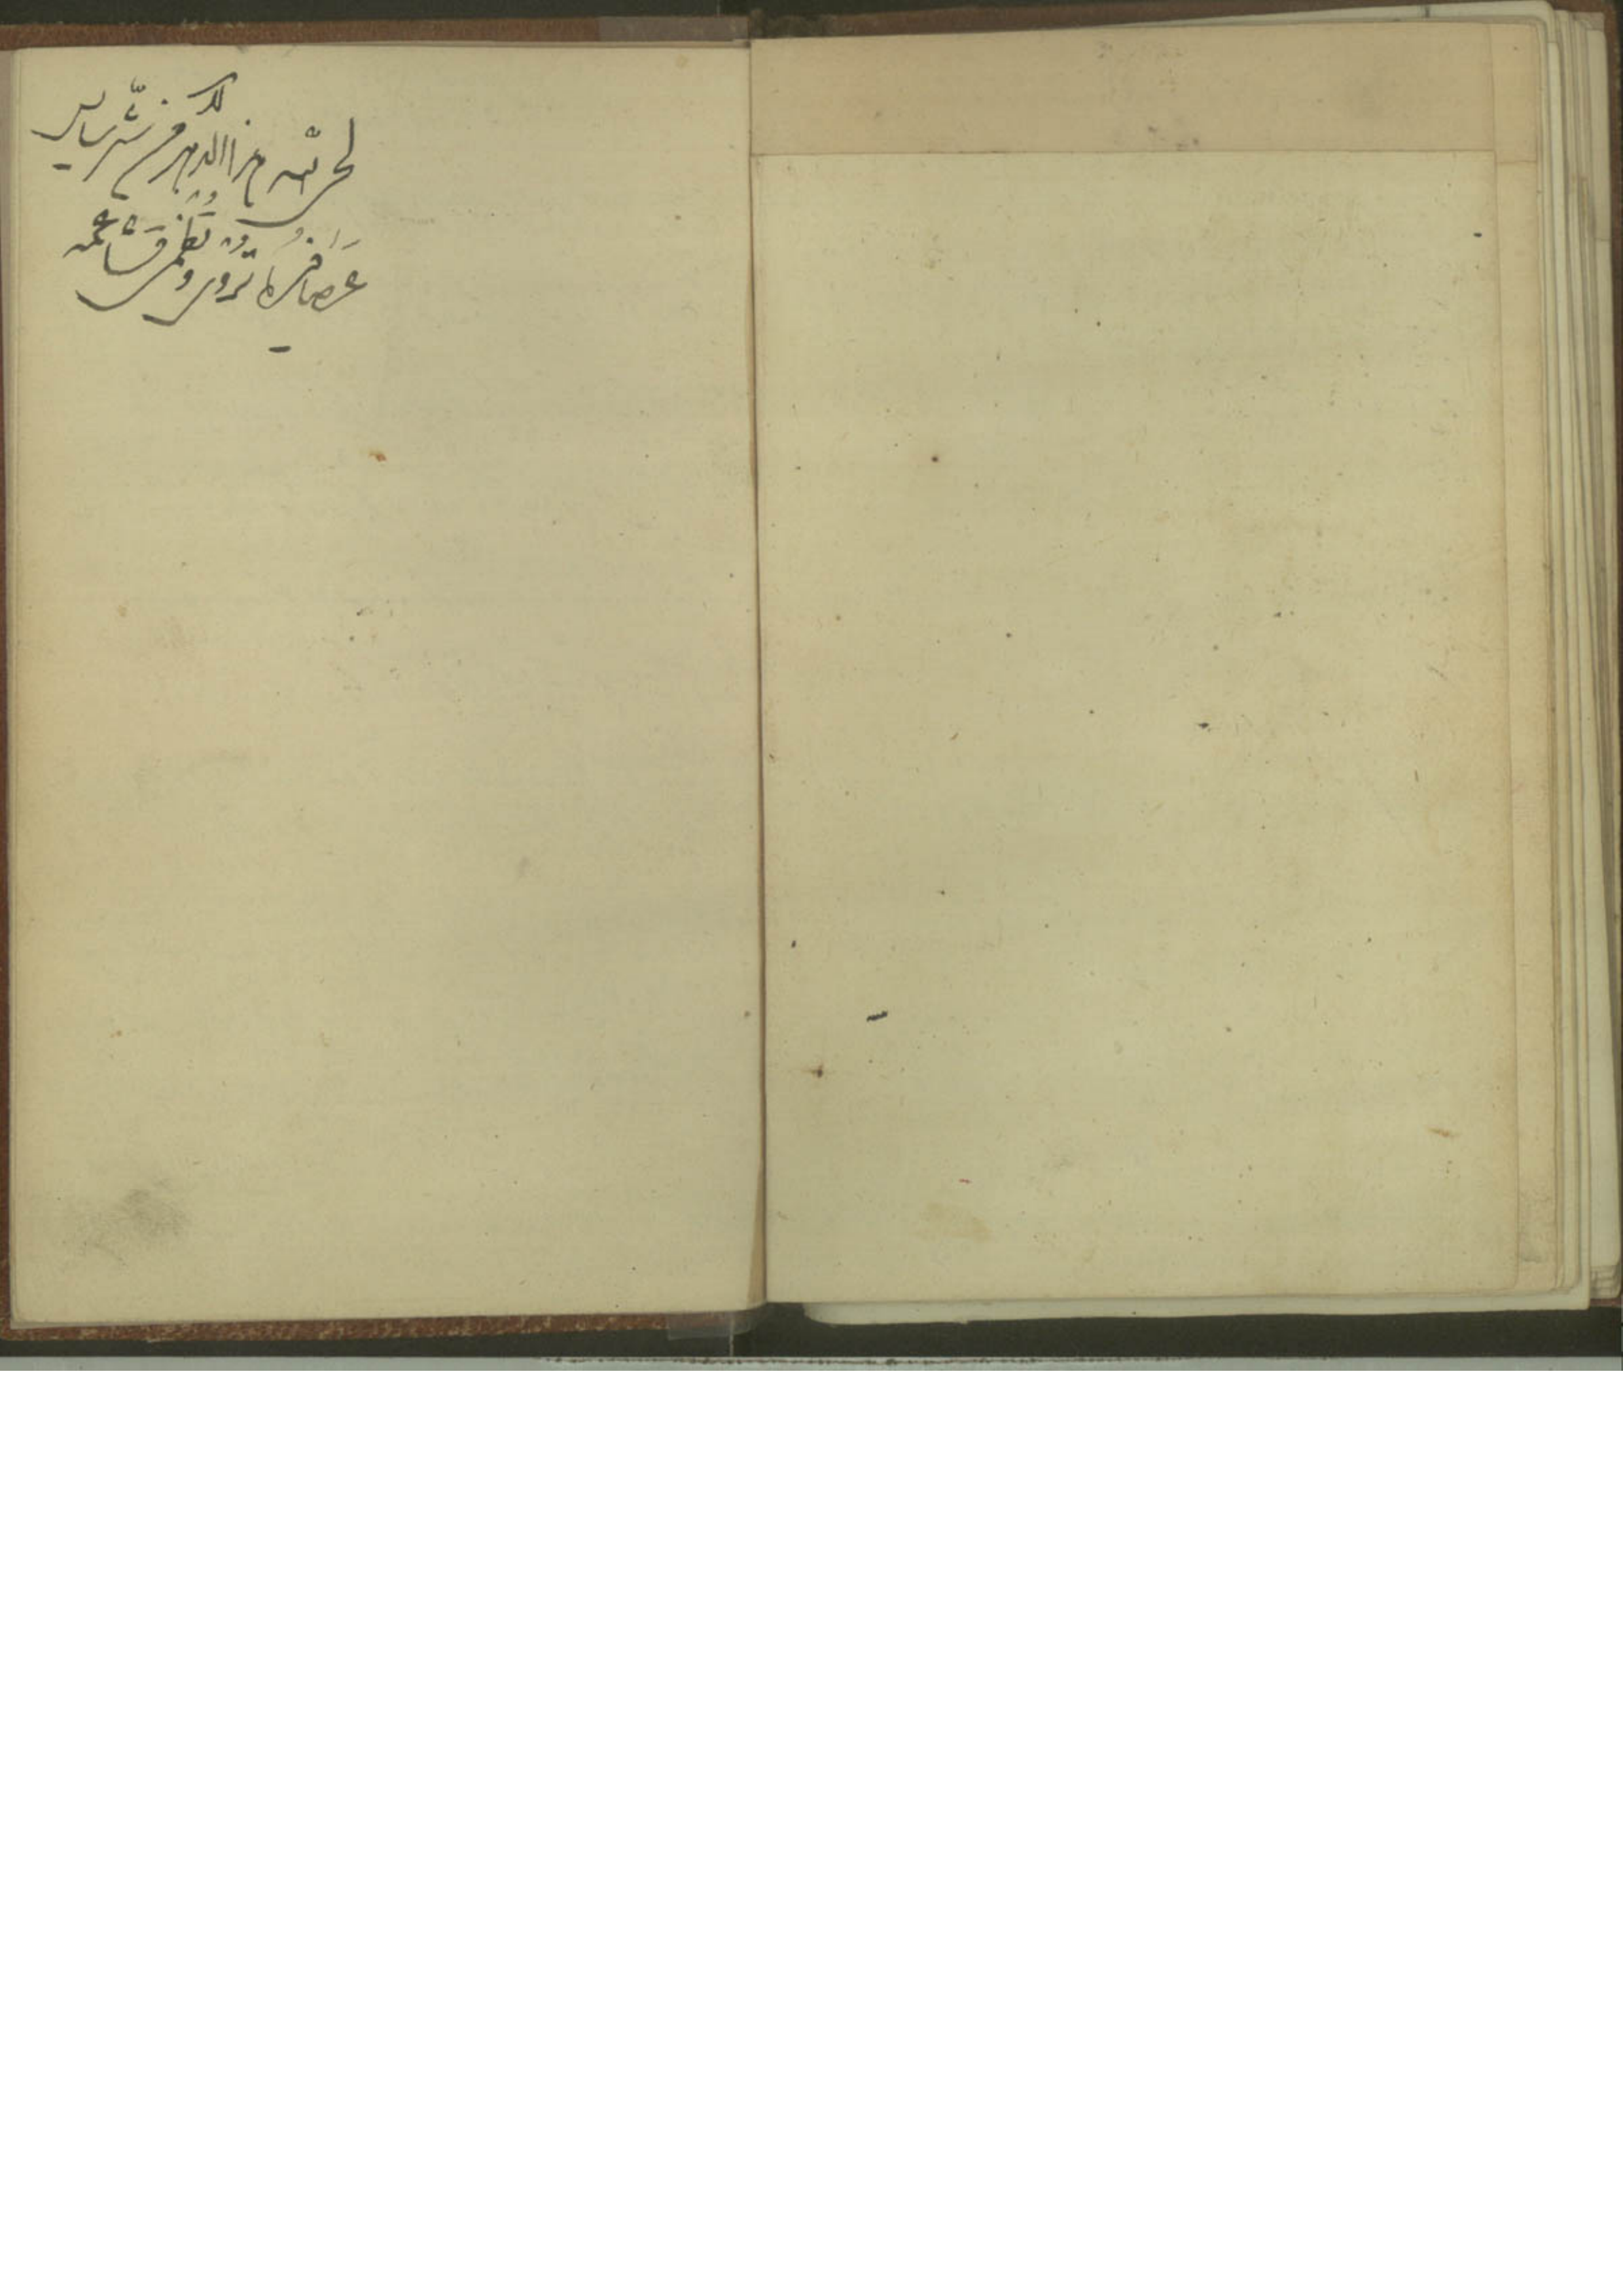 لحى الله هذا الدهر من شرّ
عصافره تروى وتظمى قشاعمه